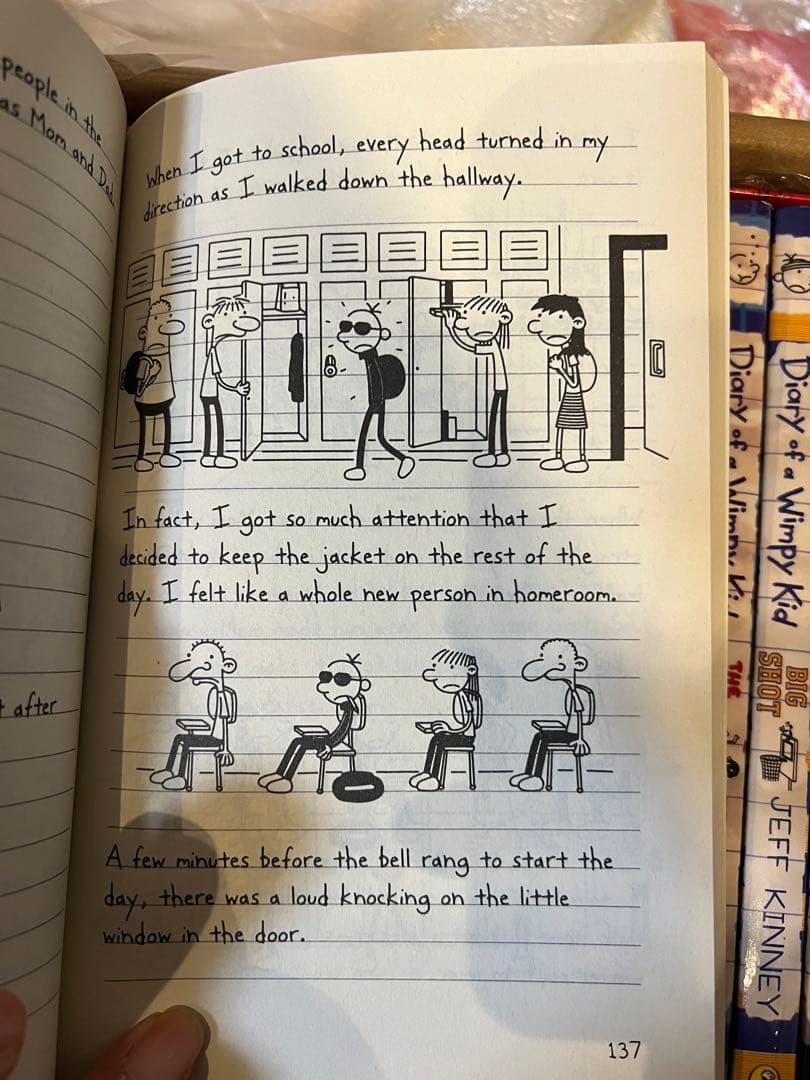 people in the
as Mom and Dad.
t after
When I got to school, every head turned in my
direction as I walked down the hallway.
In fact, I got so much attention that I
decided to keep the jacket on the rest of the
day. I felt like a whole new person in homeroom.
A few minutes before the bell rang to start the
day, there was a loud knocking on the little
window in the door.
137
Diary of a Wimpy Kid
THE
Diary of a Wimpy Kid
BIG
SHOT
JEFF KINNEY